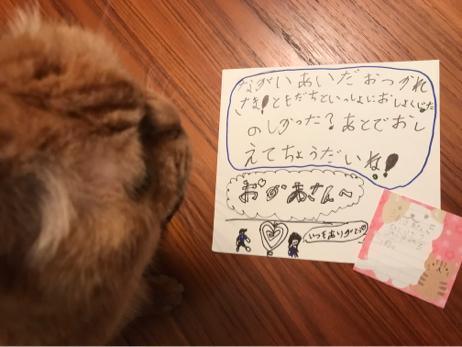 ながいあいだおつかれ
さま!ともだちといっしょにおしょくじた
のしかった?あとでおし
えてちょうだいね!
おかあさん〜
いつもありがとう